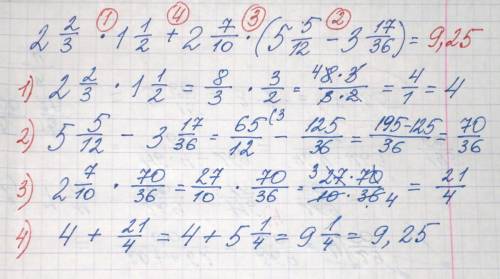 ① ④ ③ ②
2 2/3 · 1 1/2 + 2 7/10 · (5 5/12 − 3 17/36) = 9,25
1) 2 2/3 · 1 1/2 = 8/3 · 3/2 = 4 8·3/3·2 = 4/1 = 4
2) 5 5/12 − 3 17/36 = 65/12 (3 − 125/36 = 195−125/36 = 70/36
3) 2 7/10 · 70/36 = 27/10 · 70/36 = 3 27·70/10·36 4 = 21/4
4) 4 + 21/4 = 4 + 5 1/4 = 9 1/4 = 9,25